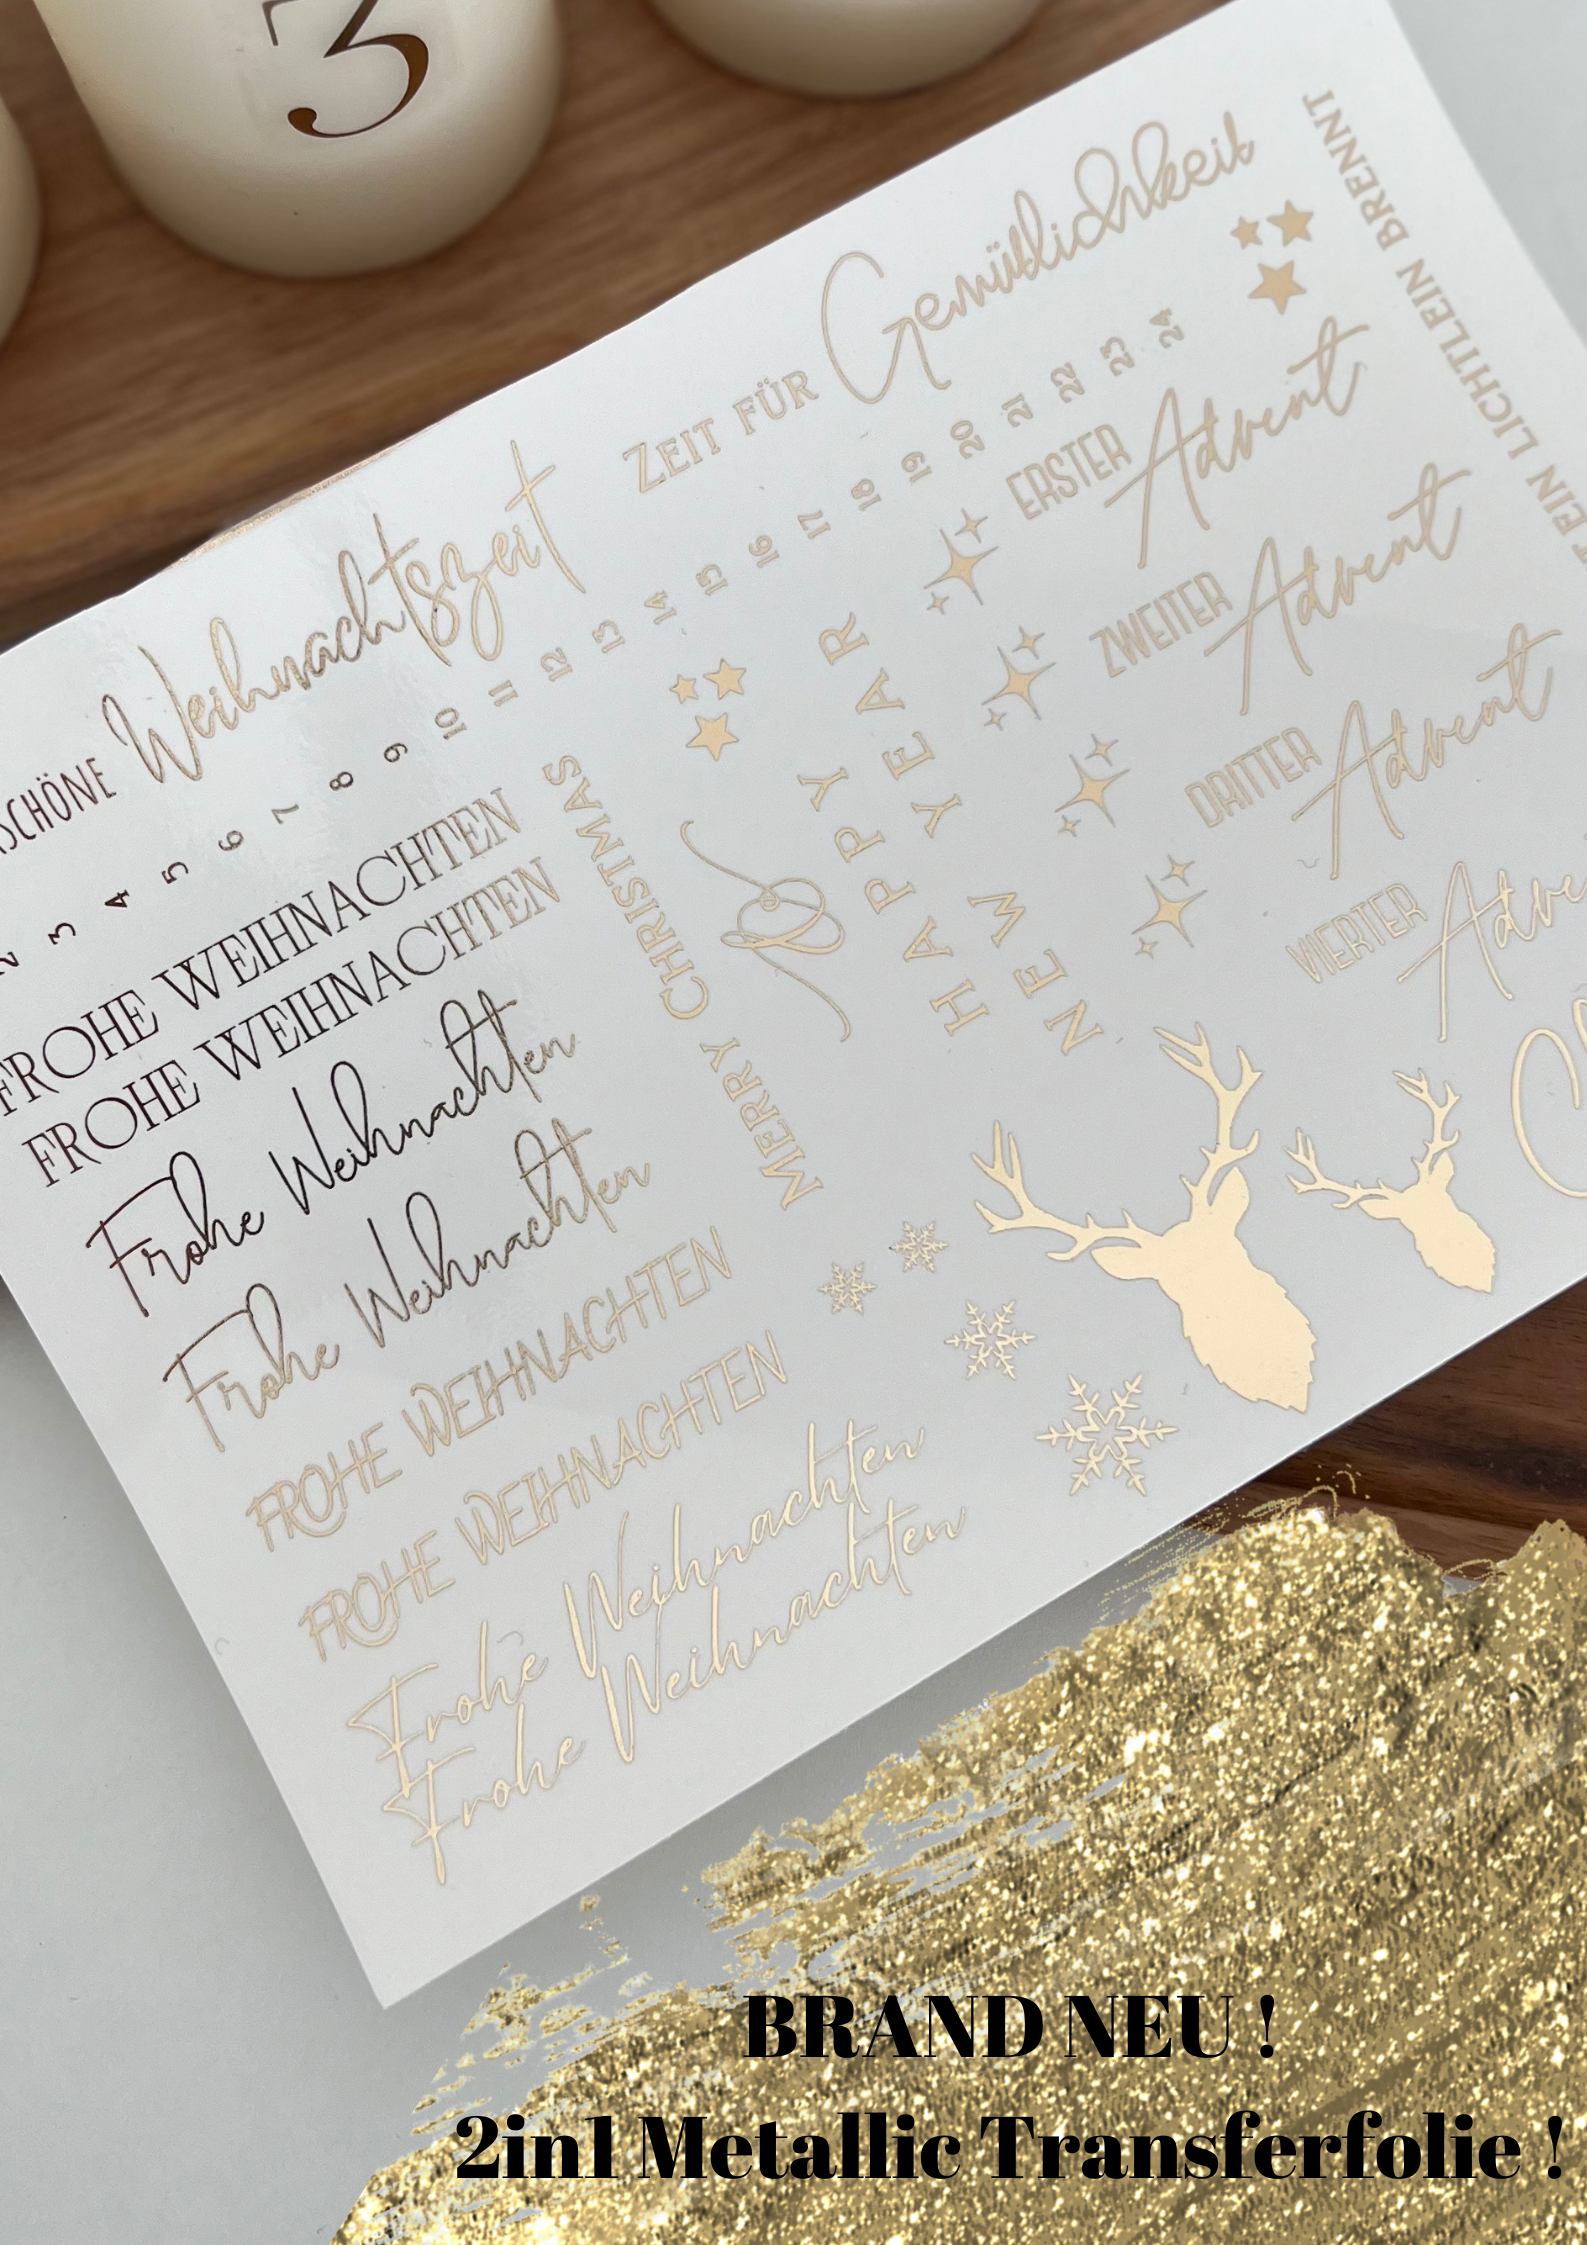 3
SCHÖNE Weihnachtszeit
ZEIT FÜR Gemütlichkeit
EIN LICHTLEIN BRENNT
2 3 4 5 6 7 8 9 10 11 12 13 14 15 16 17 18 19 20 21 22 23 24
FROHE WEIHNACHTEN
FROHE WEIHNACHTEN
Frohe Weihnachten
Frohe Weihnachten
FROHE WEIHNACHTEN
FROHE WEIHNACHTEN
Frohe Weihnachten
Frohe Weihnachten
MERRY CHRISTMAS
HAPPY
NEW YEAR
ERSTER Advent
ZWEITER Advent
DRITTER Advent
VIERTER Adve
BRAND NEU !
2in1 Metallic Transferfolie !